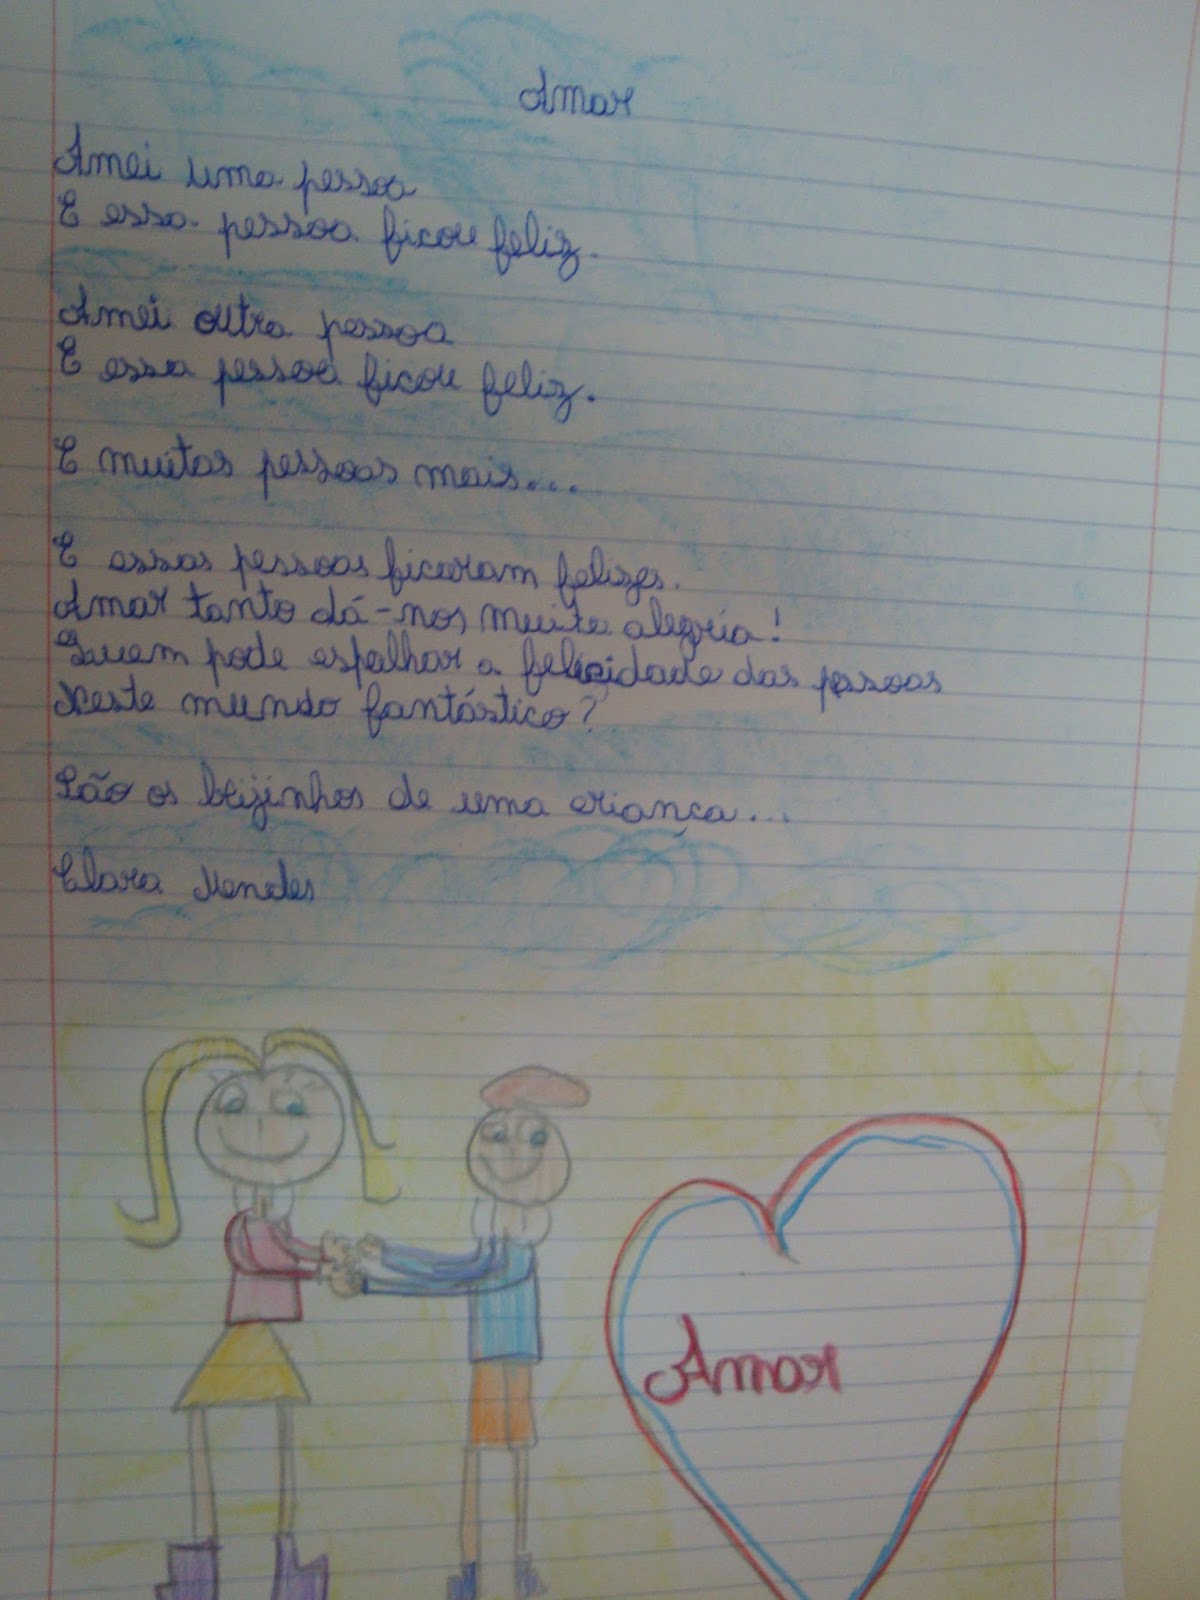 Amar
Amei uma pessoa
E essa pessoa ficou feliz.
Amei outra pessoa
E essa pessoa ficou feliz.
E muitas pessoas mais...
E essas pessoas ficaram felizes.
Amar tanto dá-nos muita alegria!
Quem pode espalhar a felicidade das pessoas
Neste mundo fantástico?
São os beijinhos de uma criança...
Clara Mendes
Amar